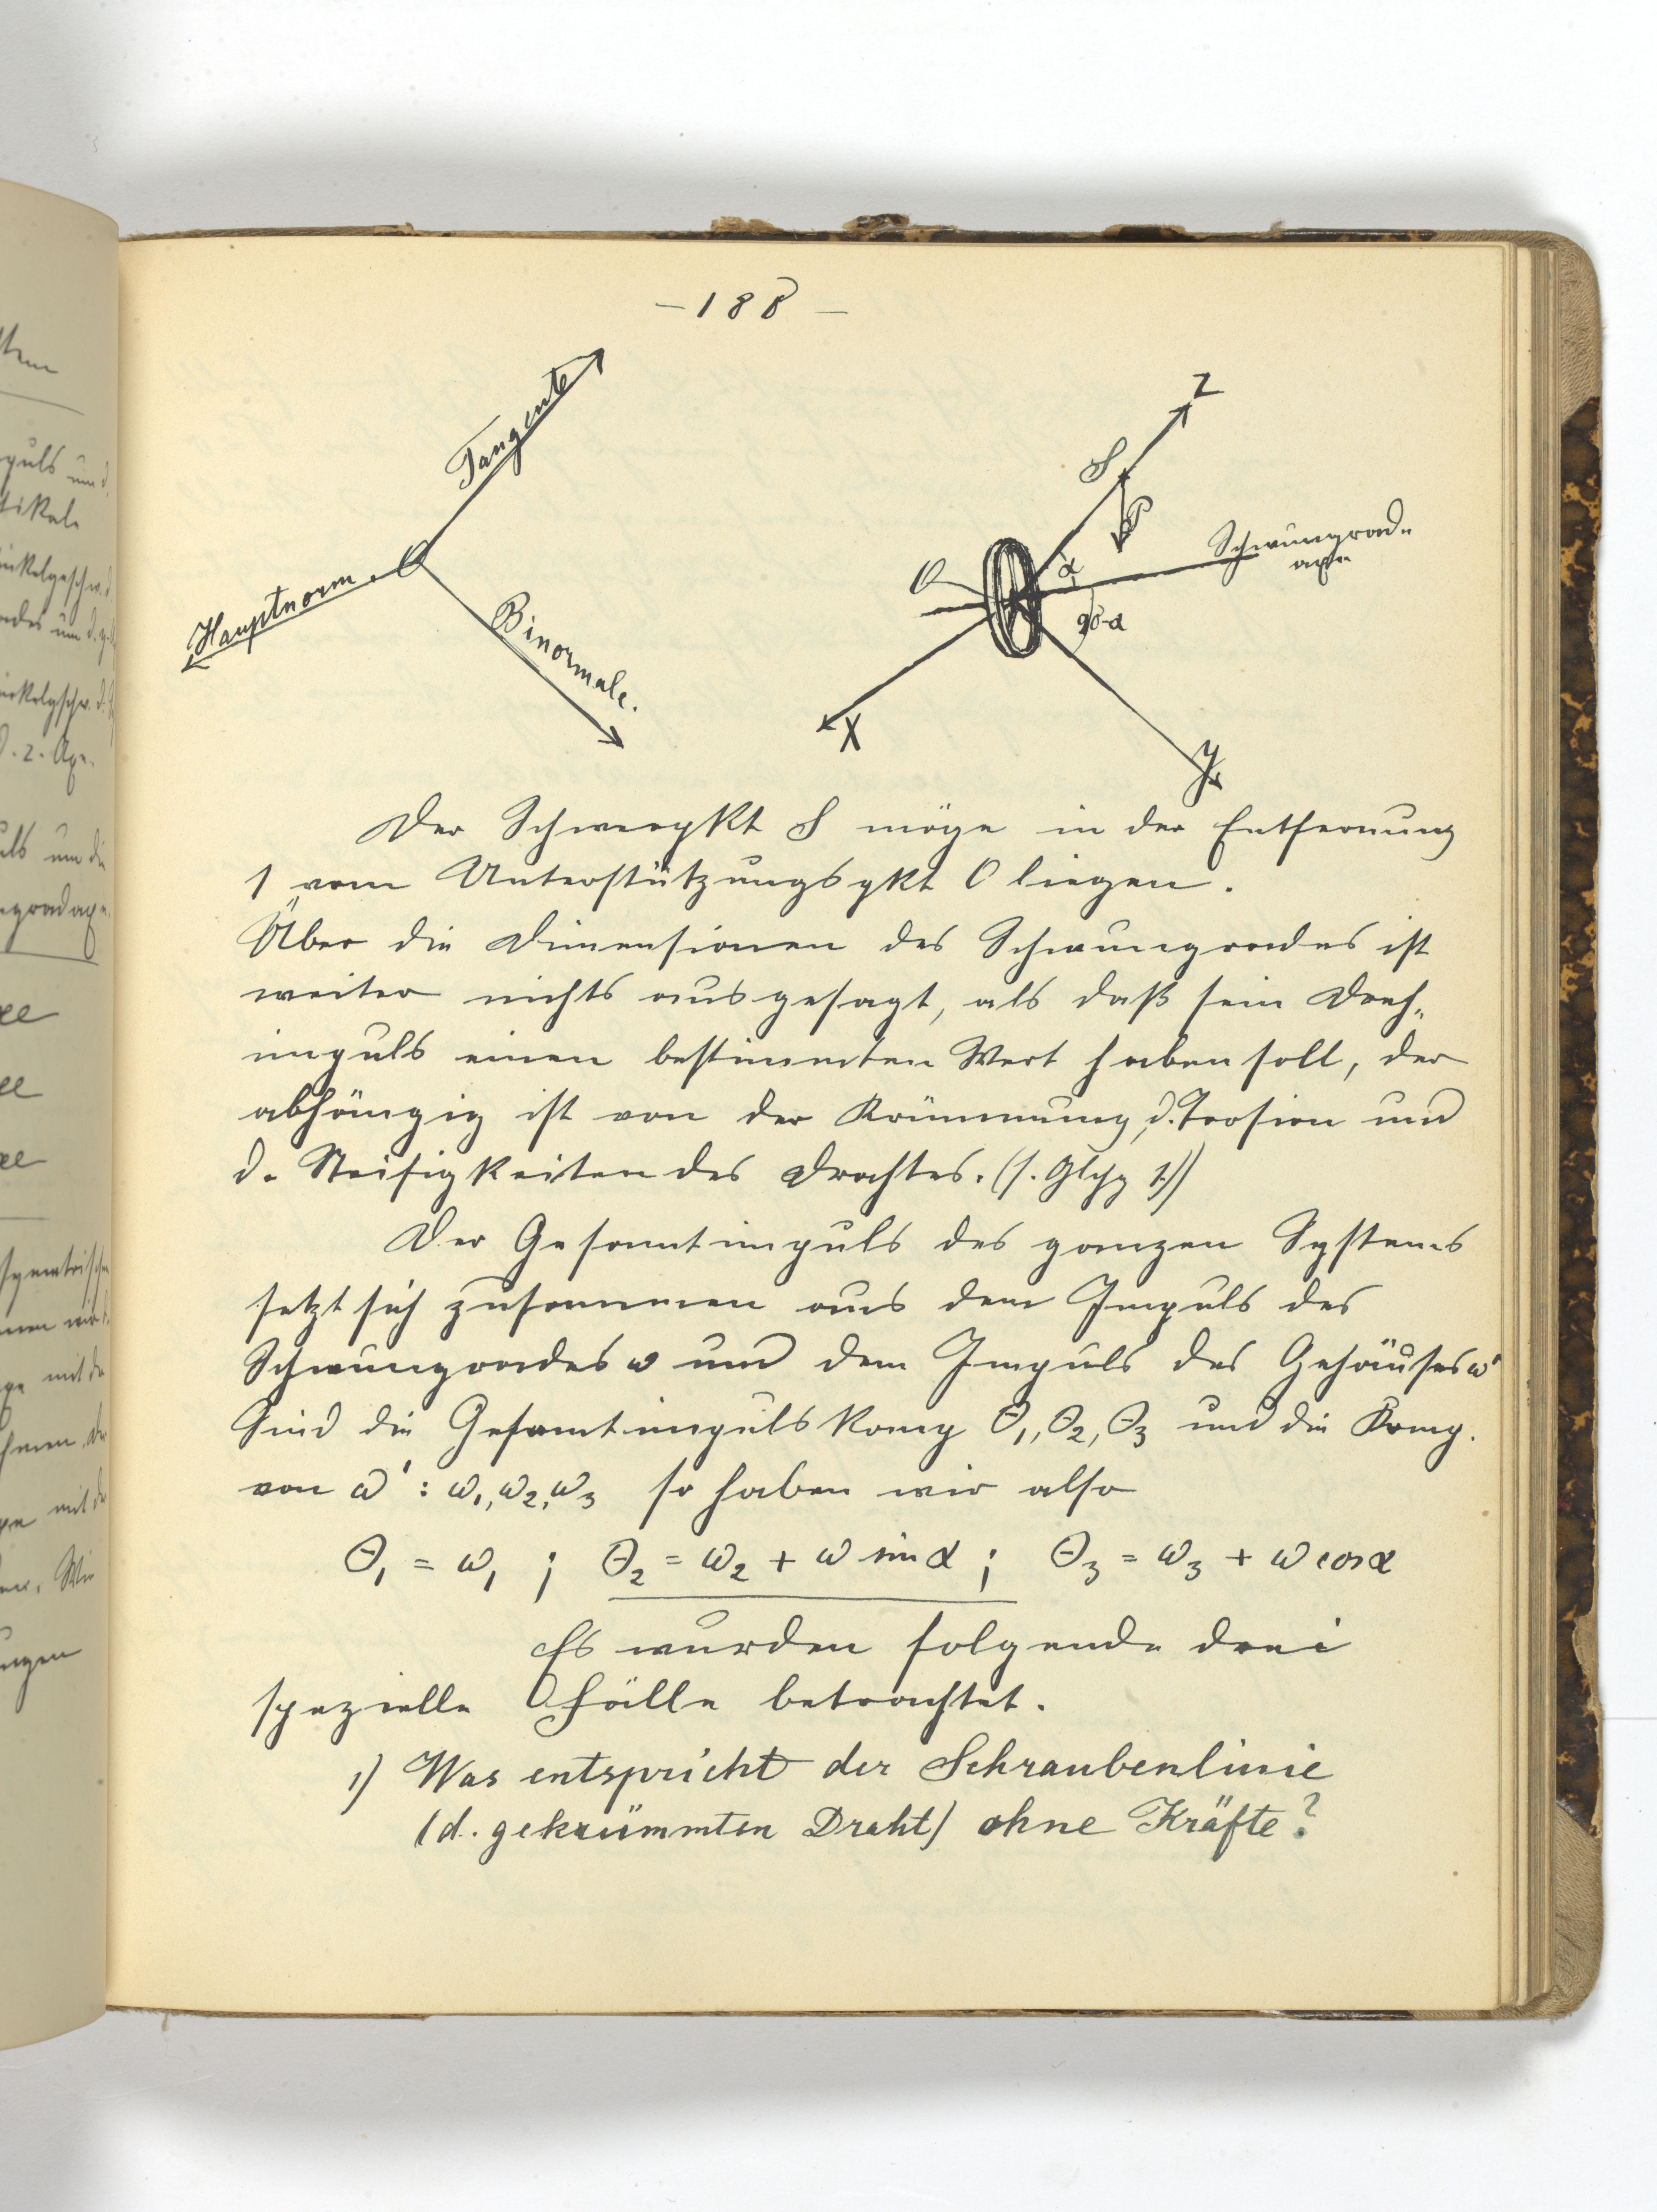 – 188 –
Tangente
O
Hauptnorm.
Binormale.
Z
S
P
Schwungrad-
axe
α
O
90-α
X
Y
Der Schwerpkt S möge in der Entfernung
1 vom Unterstützungspkt O liegen.
Über die Dimensionen des Schwungrades ist
weiter nichts ausgesagt, als daß sein Dreh-
impuls einen bestimmten Wert haben soll, der
abhängig ist von der Krümmung, d. Torsion und
d. Steifigkeiten des Drahtes. (s. Glchg 1.))
Der Gesamtimpuls des ganzen Systems
setzt sich zusammen aus dem Impuls des
Schwungrades ω und dem Impuls des Gehäuses ω'
Sind die Gesamtimpulskomp Θ₁, Θ₂, Θ₃ und die Komp.
von ω' : ω₁, ω₂, ω₃ so haben wir also
Θ₁ = ω₁ ; Θ₂ = ω₂ + ω sin α ; Θ₃ = ω₃ + ω cos α
Es wurden folgende drei
spezielle Fälle betrachtet.
1) Was entspricht der Schraubenlinie
(d. gekrümmten Draht) ohne Kräfte?